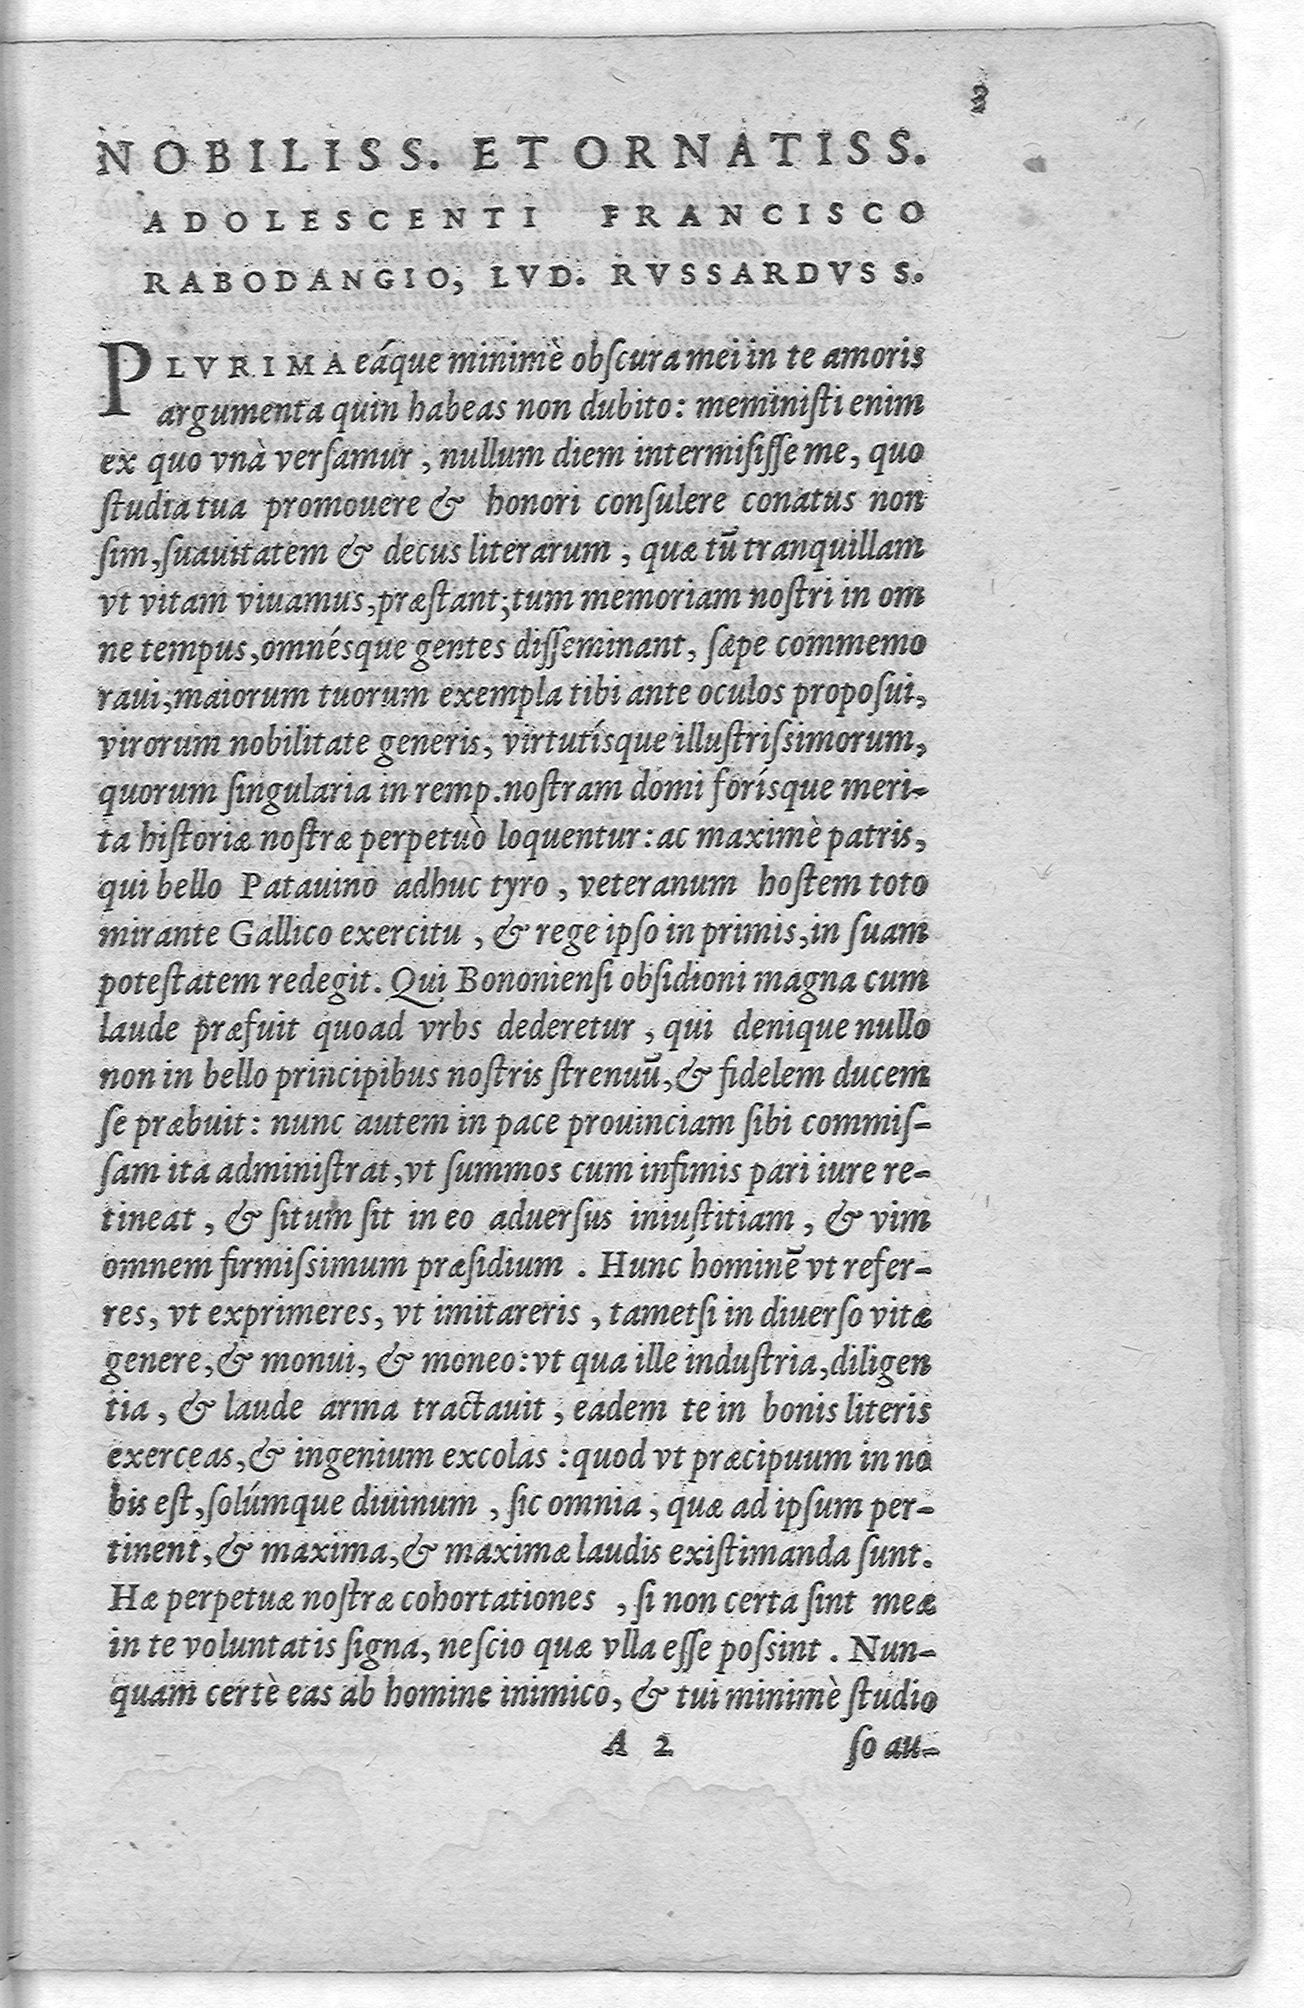 3
NOBILISS. ET ORNATISS.
ADOLESCENTI FRANCISCO
RABODANGIO, LVD. RVSSARDVS S.
PLVRIMA eáque minimè obſcura mei in te amoris
argumenta quin habeas non dubito: meminiſti enim
ex quo vnà verſamur, nullum diem intermiſiſſe me, quo
ſtudia tua promouere & honori conſulere conatus non
ſim, ſuauitatem & decus literarum, quæ tū tranquillam
vt vitam viuamus, præſtant; tum memoriam noſtri in om
ne tempus, omnésque gentes diſſeminant, ſæpe commemo
raui; maiorum tuorum exempla tibi ante oculos propoſui,
virorum nobilitate generis, virtutísque illuſtriſsimorum,
quorum ſingularia in remp. noſtram domi forísque meri-
ta hiſtoriæ noſtræ perpetuò loquentur: ac maximè patris,
qui bello Patauino adhuc tyro, veteranum hoſtem toto
mirante Gallico exercitu, & rege ipſo in primis, in ſuam
poteſtatem redegit. Qui Bononienſi obſidioni magna cum
laude præfuit quoad vrbs dederetur, qui denique nullo
non in bello principibus noſtris ſtrenuū, & fidelem ducem
ſe præbuit: nunc autem in pace prouinciam ſibi commiſ-
ſam ita adminiſtrat, vt ſummos cum infimis pari iure re-
tineat, & ſitum ſit in eo aduerſus iniuſtitiam, & vim
omnem firmiſsimum præſidium. Hunc hominē vt refer-
res, vt exprimeres, vt imitareris, tametſi in diuerſo vitæ
genere, & monui, & moneo: vt qua ille induſtria, diligen
tia, & laude arma tractauit, eadem te in bonis literis
exerceas, & ingenium excolas: quod vt præcipuum in no
bis eſt, ſolúmque diuinum, ſic omnia, quæ ad ipſum per-
tinent, & maxima, & maximæ laudis exiſtimanda ſunt.
Hæ perpetuæ noſtræ cohortationes, ſi non certa ſint meæ
in te voluntatis ſigna, neſcio quæ vlla eſſe poſsint. Nun-
quam certè eas ab homine inimico, & tui minimè ſtudio
A 2 ſo au-